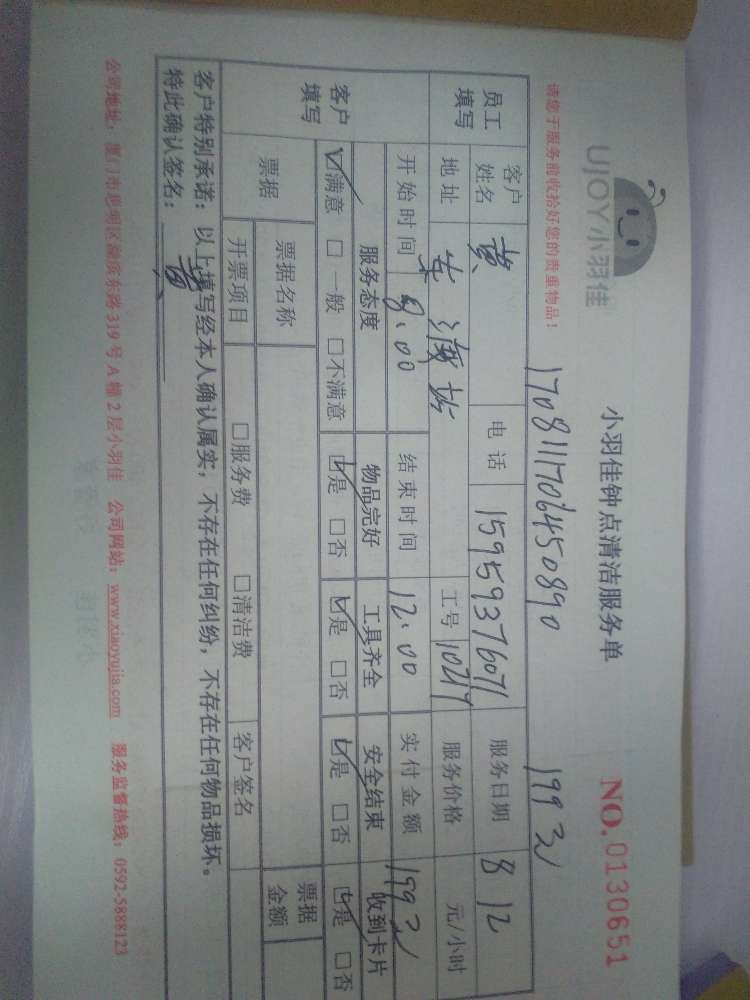 UJOY小羽佳
小羽佳钟点清洁服务单
NO.0130651
请您于服务前收拾好您的贵重物品！
1708111706450890
199元
员工填写
客户姓名 黄
电话 15959376071
服务日期 8 12
地址
工号 10217
服务价格 元/小时
开始时间 8:00
结束时间 12:00
实付金额 199元
客户填写
服务态度
物品完好
工具齐全
安全结束
收到卡片
☑满意 □一般 □不满意
☑是 □否
☑是 □否
☑是 □否
☑是 □否
票据
票据名称
票据金额
开票项目
□服务费 □清洁费
客户签名
客户特别承诺：以上填写经本人确认属实，不存在任何纠纷，不存在任何物品损坏。
特此确认签名：黄
公司地址：厦门市思明区湖滨东路319号A幢2层小羽佳 公司网站：www.xiaoyujia.com 服务监督热线：0592-5888123